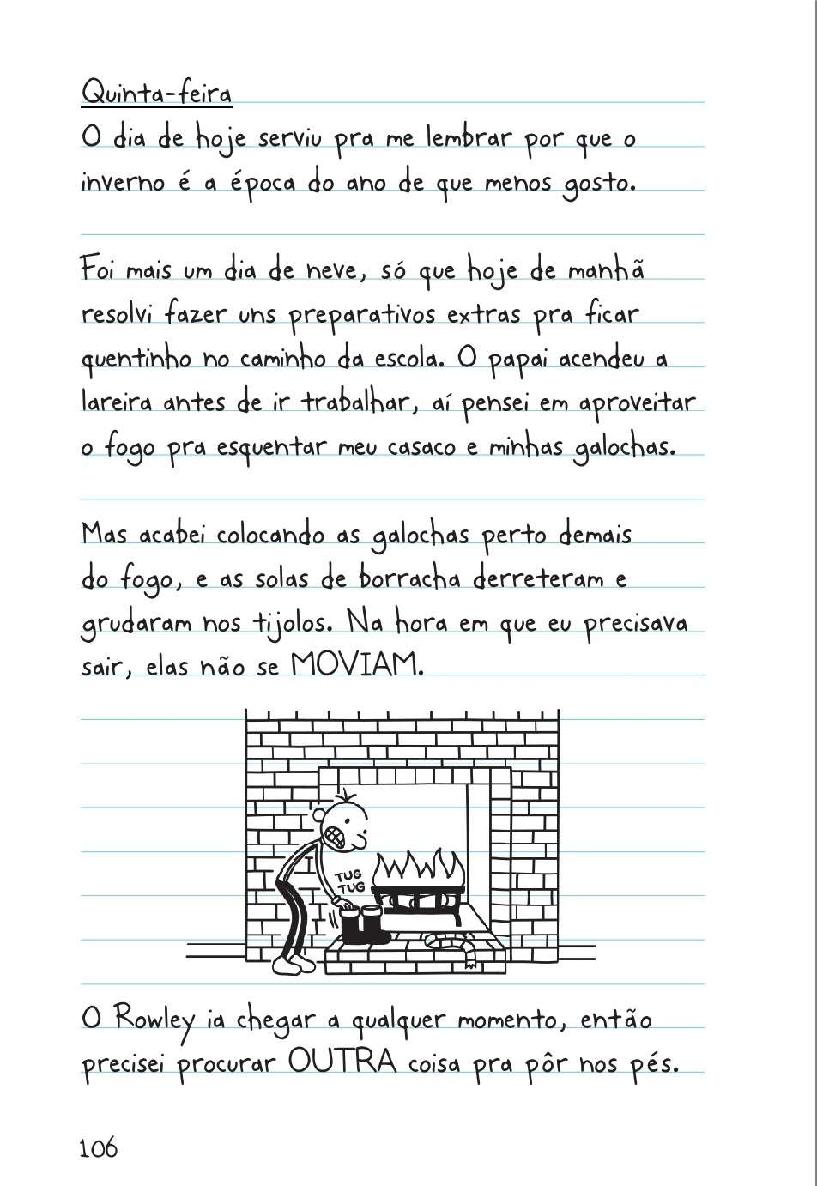 Quinta-feira
O dia de hoje serviu pra me lembrar por que o
inverno é a época do ano de que menos gosto.
Foi mais um dia de neve, só que hoje de manhã
resolvi fazer uns preparativos extras pra ficar
quentinho no caminho da escola. O papai acendeu a
lareira antes de ir trabalhar, aí pensei em aproveitar
o fogo pra esquentar meu casaco e minhas galochas.
Mas acabei colocando as galochas perto demais
do fogo, e as solas de borracha derreteram e
grudaram nos tijolos. Na hora em que eu precisava
sair, elas não se MOVIAM.
TUG
TUG
O Rowley ia chegar a qualquer momento, então
precisei procurar OUTRA coisa pra pôr nos pés.
106